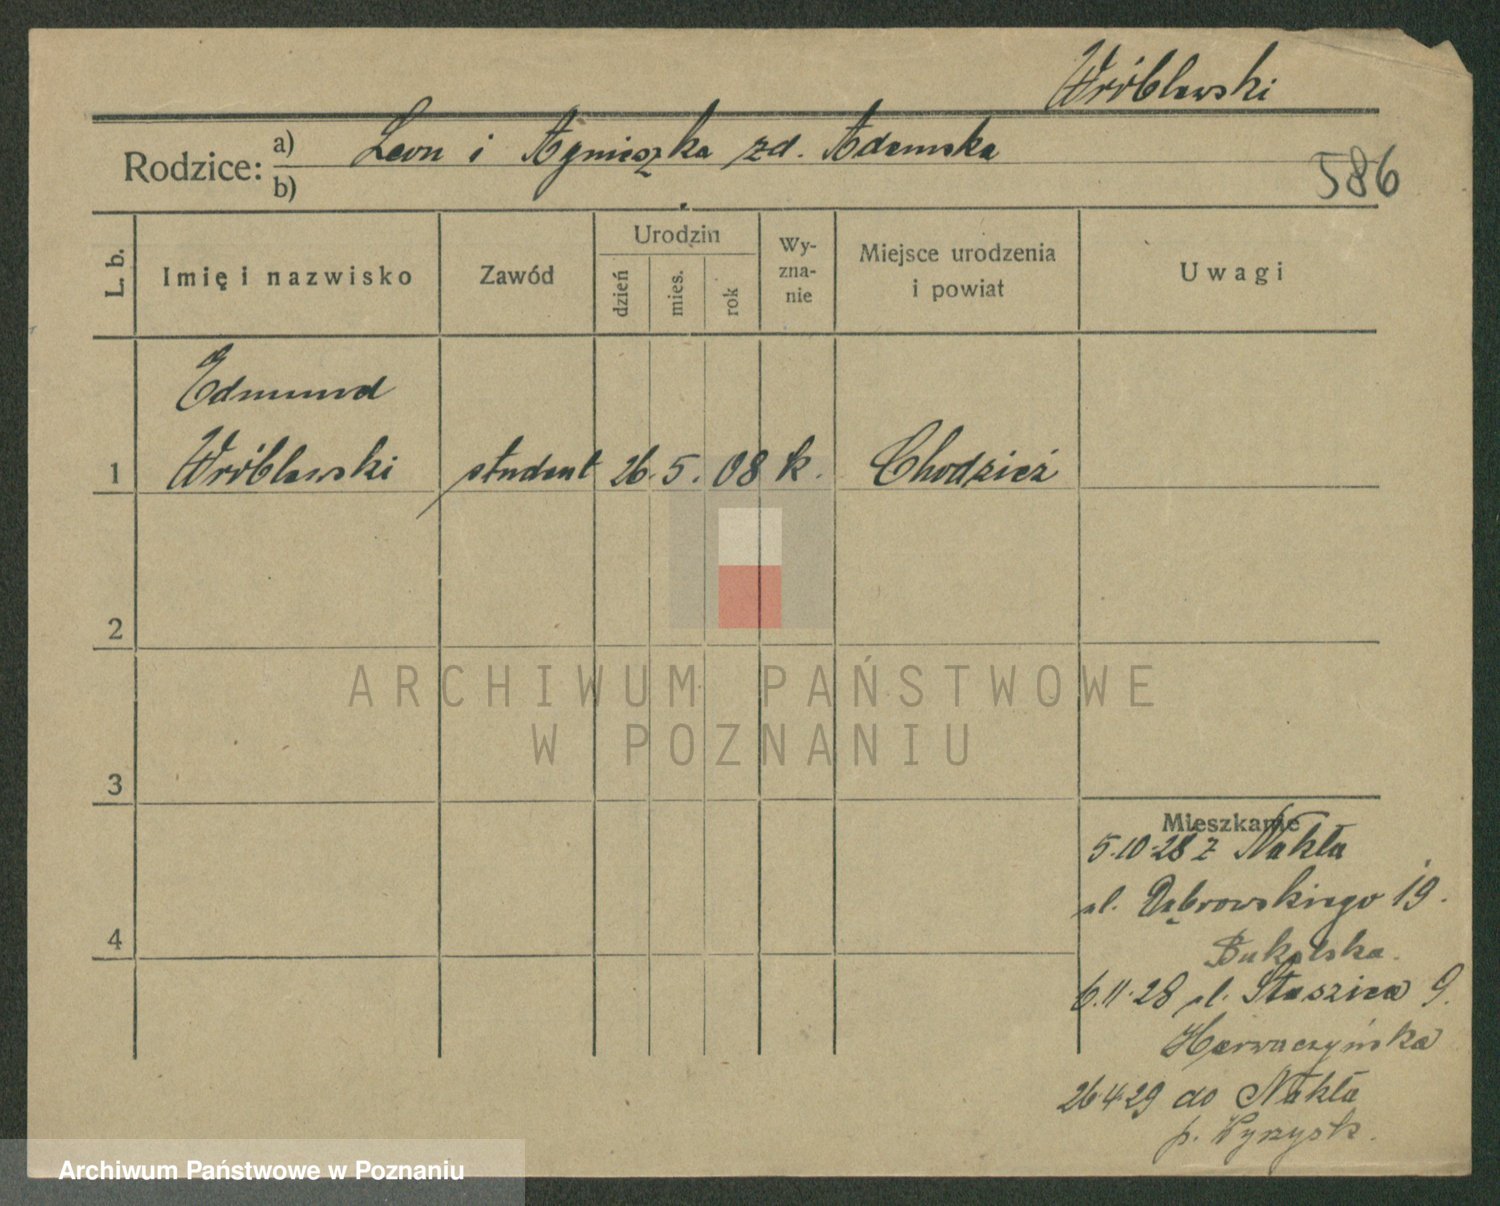 Wróblewski
Rodzice: a) Leon i Agnieszka zd. Adamska
b)
586
L. b.
Imię i nazwisko
Zawód
Urodzin
dzień
mies.
rok
Wy-
zna-
nie
Miejsce urodzenia
i powiat
Uwagi
Edmund
1 Wróblewski student 26. 5. 08 k. Chodzież
2
3
4
Mieszkanie
5.10.28 z Nakła
ul. Dąbrowskiego 19.
Bukalska.
6.11.28 ul. Staszica 9.
26.4.29 do Nakła
p. Wyrzysk.
ARCHIWUM PAŃSTWOWE
W POZNANIU
Archiwum Państwowe w Poznaniu